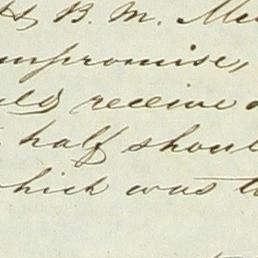 B. M. Me
ompromise,
uld receive a
half shoul
which was t